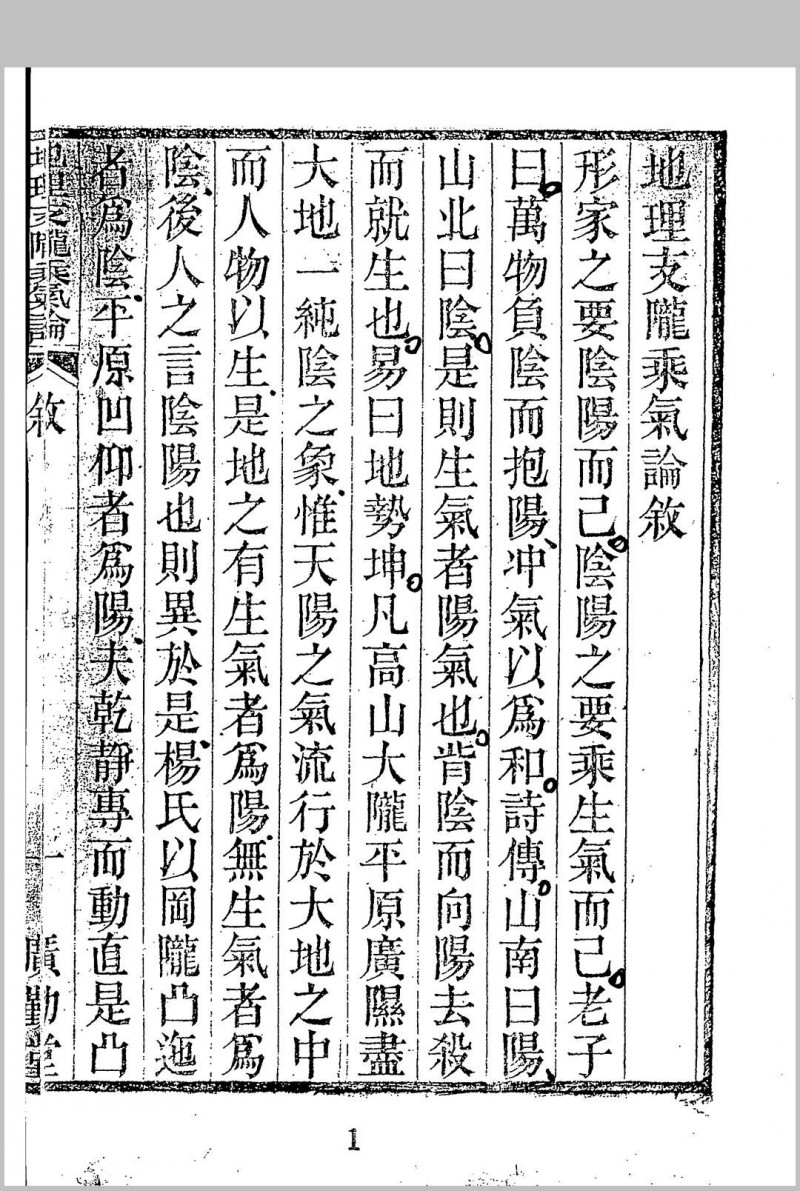 地理支隴乘氣論敘
形家之要陰陽而已陰陽之要乘生氣而已老子
曰萬物負陰而抱陽冲氣以爲和詩傳山南曰陽
山北曰陰是則生氣者陽氣也背陰而向陽去殺
而就生也易曰地勢坤凡高山大隴平原廣隰盡
大地一純陰之象惟天陽之氣流行於大地之中
而人物以生是地之有生氣者爲陽無生氣者爲
陰後人之言陰陽也則異於是楊氏以岡隴凸迤
者爲陰平原凹仰者爲陽夫乾靜專而動直是凸
地理支隴乘氣論 敘 一 廣勤堂
1